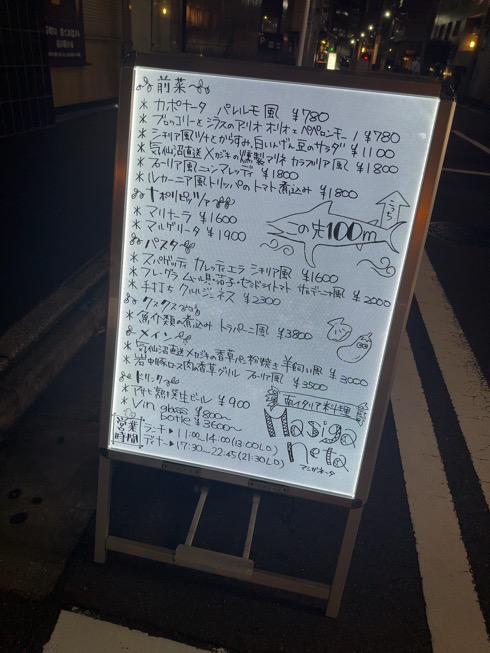 前菜
* カポナータ パレルモ風 ¥780
* ブロッコリーとシラスのアリオ オリオ エ ペペロンチーノ ¥780
* シチリア風ツナとからすみ、白いんげん豆のサラダ ¥1100
* 気仙沼直送メカジキの燻製マリネ カラブリア風 ¥1800
* プーリア風 ¥1800
* ルカーニア風トリッパのトマト煮込み ¥1800
ナポリピッツァ
* マリナーラ ¥1600
* マルゲリータ ¥1900
うち
この先100m
パスタ
* スパゲッティ カレッティエラ シチリア風 ¥1600
* フレーグラ ムール貝 茄子・セミドライトマト サルデーニャ風 ¥2000
* 手打ち クルルジョネス ¥2300
クスクス
* 魚介類の煮込み トラパーニ風 ¥3800
メイン
* 気仙沼直送メカジキの香草パン粉焼き 羊飼い風 ¥3000
* 岩中豚ロース肉の香草グリル プーリア風 ¥3500
ドリンク
* アサヒ熟撰生ビール ¥900
* Vin glass ¥800~
bottle ¥3600~
営業時間
ランチ▶11:00~14:00(13:00LO)
ディナー▶17:30~22:45(21:30LO)
南イタリア料理
Masiga
neta
マシガネータ